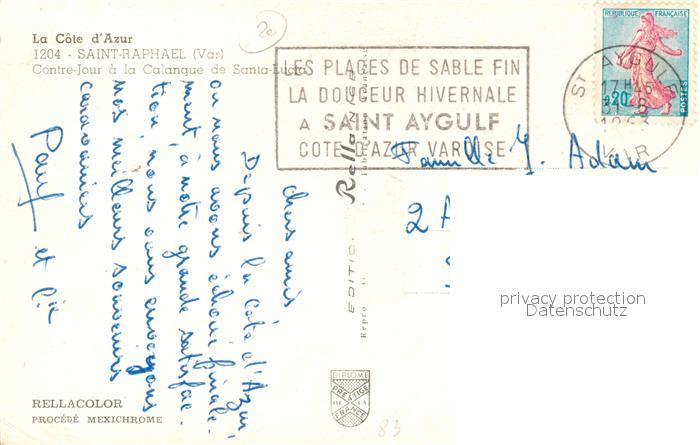 La Côte d'Azur
1204 - SAINT-RAPHAEL (Var)
Contre-Jour à la Calanque de Santa-Lucia
20
LES PLAGES DE SABLE FIN
LA DOUCEUR HIVERNALE
A SAINT AYGULF
COTE D'AZUR VAROISE
REPUBLIQUE FRANÇAISE
0,20
POSTES
ST AYGULF
17H45
VAR
Famille J. Adam
2 A
chers amis
Depuis la Côte d'Azur,
où nous avons échoué finale-
ment, à notre grande satisfac-
tion, nous vous envoyons
nos meilleurs souvenirs
caravaniers
Paul et
EDITION Rella NICE
Repro.
privacy protection
Datenschutz
RELLACOLOR
PROCÉDÉ MEXICHROME
DIPLOME
PRESTIGE
DE LA
FRANCE
83